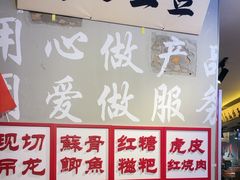 用心做产品
用爱做服务
现切吊龙
蘇骨鲫魚
红糖糍粑
虎皮红烧肉